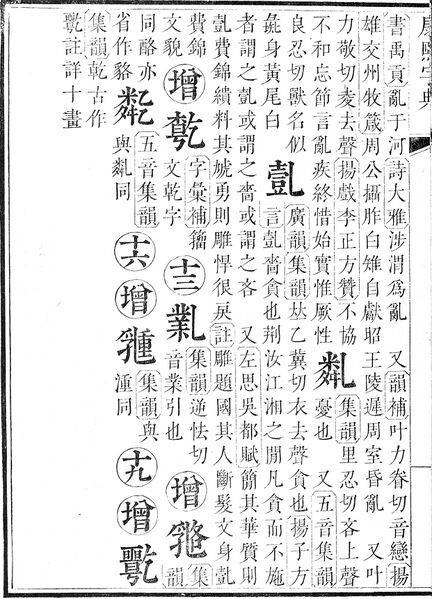 康熙字典
書禹貢亂于河 詩大雅涉渭爲亂 又韻補叶力眷切音戀揚
雄交州牧箴周公攝胙白雉自獻昭王陵遲周室昏亂 又叶
力敬切夌去聲揚戲李正方贊不協
不和忘節言亂疾終惜始實惟厥性
亃
集韻里忍切吝上聲
憂也 又五音集韻
良忍切獸名似
彘身黃尾白
亄
廣韻集韻𠀤乙冀切衣去聲貪也揚子方
言亄嗇貪也荆汝江湘之閒凡貪而不施
者謂之亄或謂之嗇或謂之吝 又左思吳都賦簡其華質則
亄費錦繢料其虓勇則雕悍很戾註雕題國其人斷髮文身亄
費錦
文貌
增
字彙補籀
文乾字
十三
集韻逆怯切
音業引也
增
集
韻
同酪亦
省作貉
五音集韻
與亃同
十六
增
集韻與
湩同
十九
增
集韻乾古作
註詳十畫